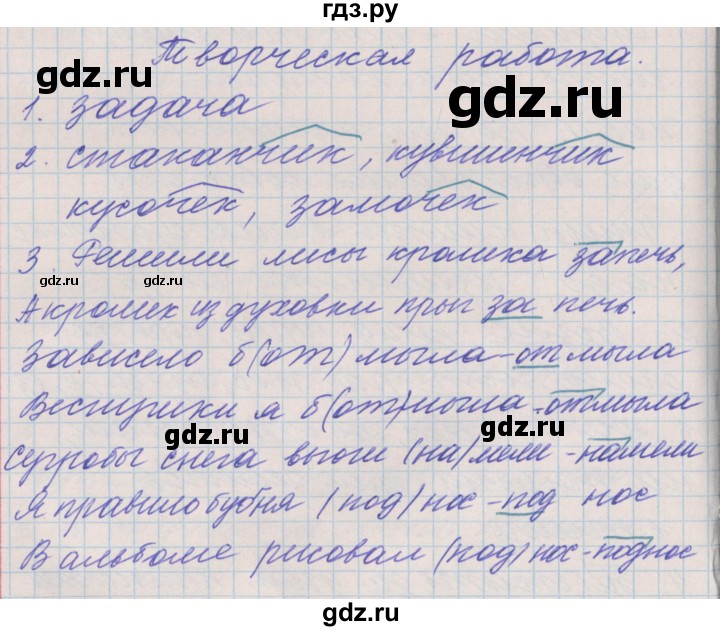 гдз.ру
Творческая работа.
gdz.ru
gdz.ru
1. задача
2. стаканчик, кувшинчик
кусочек, замочек
3. Решили лисы кролика запечь,
gdz.ru
gdz.ru
А кролик из духовки прыг за печь.
Зависело б (от) мыла - от мыла
Веснушки я б (от)мыла - отмыла
gdz.ru
gdz.ru
Сугробы снега вьюги (на)мели - намели
Я правило бубня (под) нос - под нос
В альбоме рисовал (под) нос - поднос
gdz.ru